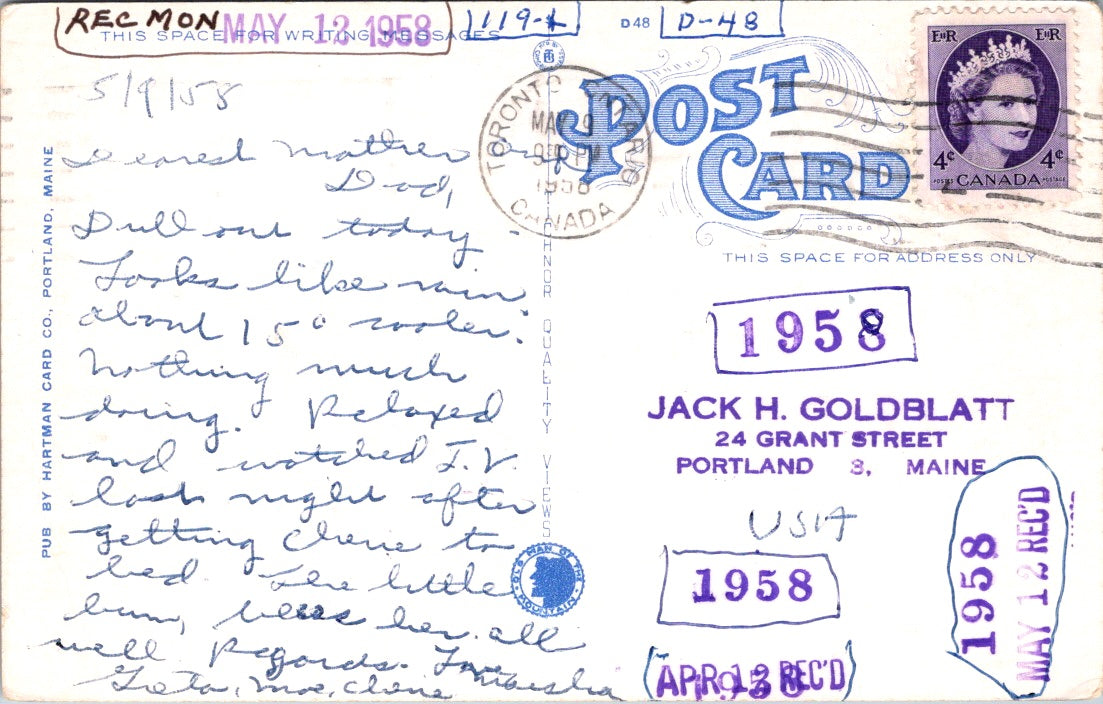 REC MON MAY 12 1958
119-L
D48
D-48
THIS SPACE FOR WRITING MESSAGES
5/9/58
Dearest Mother and
Dad,
Dull out today -
Looks like rain
about 15° cooler.
Nothing much
doing. Relaxed
and watched T.V.
last night after
getting Cherie to
bed. The little
bum, bless her. All
well. Regards. Love
Mo, Cherie
PUB BY HARTMAN CARD CO., PORTLAND, MAINE
QUALITY VIEWS
OLD MAN OF THE MOUNTAIN
POST
CARD
TORONTO ONTARIO
MAY 9
PM
1958
CANADA
EIIR EIIR
4¢ 4¢
POSTES CANADA POSTAGE
THIS SPACE FOR ADDRESS ONLY
1958
JACK H. GOLDBLATT
24 GRANT STREET
PORTLAND 3, MAINE
USA
1958
1958
MAY 12 REC'D
APR 12 REC'D
1958